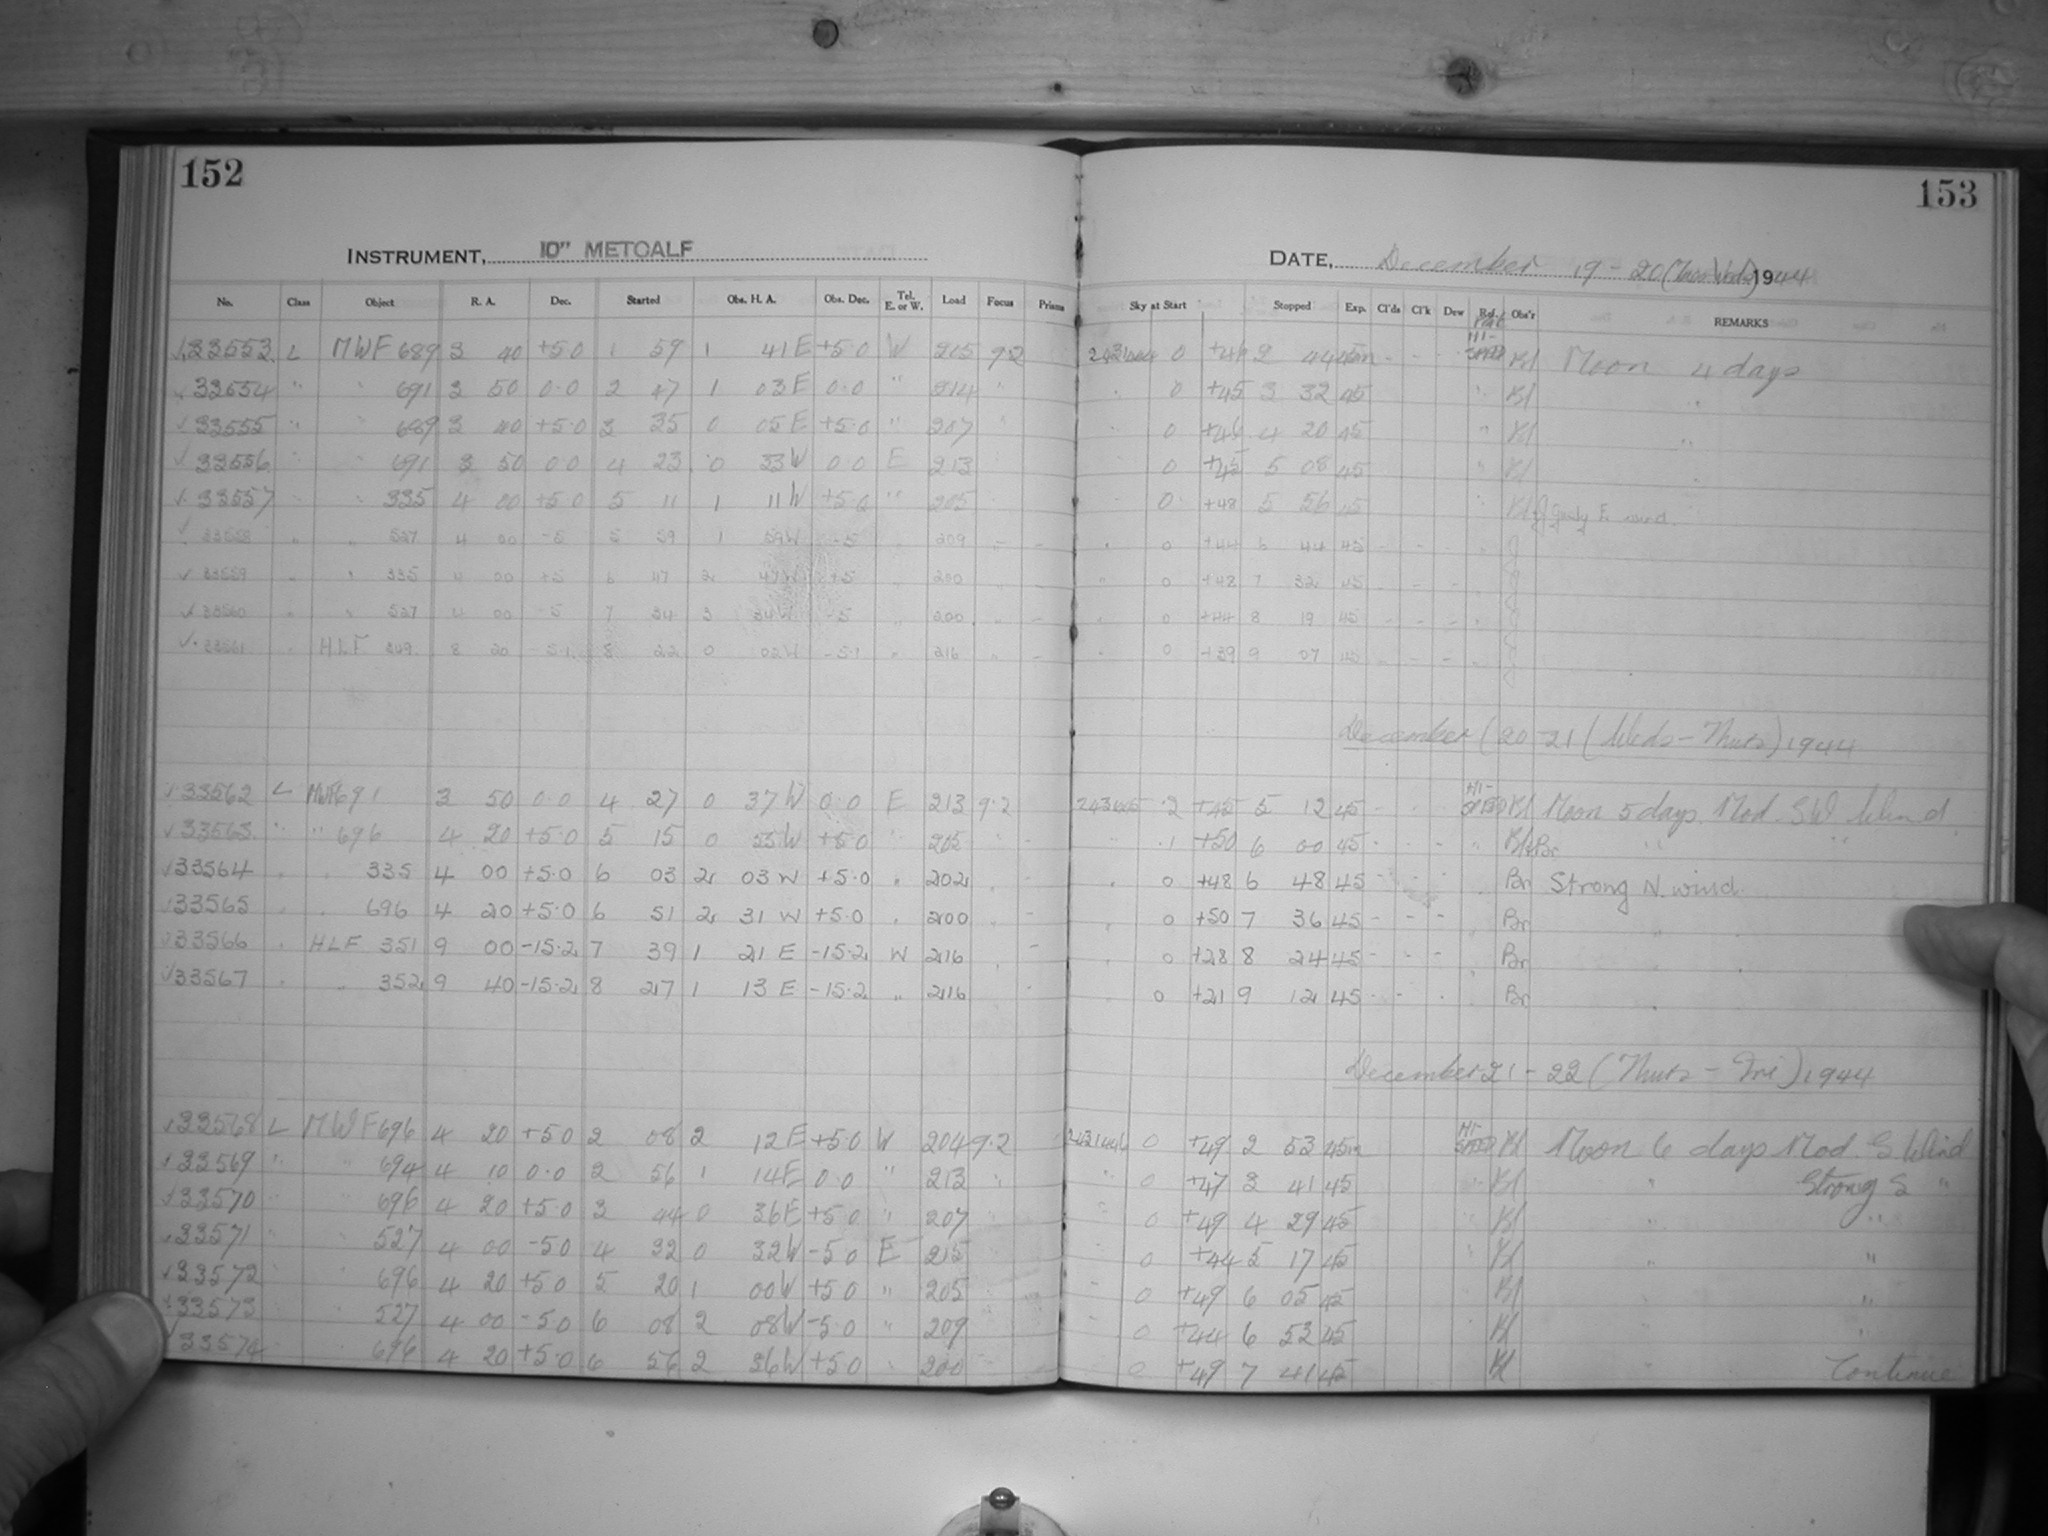 152
153
INSTRUMENT, 10" METCALF
DATE, December 19-20 (Tues-Weds) 1944
No. Class Object R. A. Dec. Started Obs. H. A. Obs. Dec. Tel. E. or W. Load Focus Prisms Sky at Start Stopped Exp. Cl'ds Cl'k Dew Obs'r REMARKS
33553 L MWF 689 3 40 +5.0 1 59 1 41 E +5.0 W 205 9.2 0 2 44 45m HI-SPEED Kl Moon 4 days
33554 " " 691 3 50 0.0 2 47 1 03 E 0.0 " 214 " 0 +45 3 32 45 " Kl "
33555 " " 689 3 40 +5.0 3 35 0 05 E +5.0 " 207 " 0 +46 4 20 45 " Kl "
33556 " " 691 3 50 0.0 4 23 0 33 W 0.0 E 213 0 +45 5 08 45 " Kl "
33557 " " 335 4 00 +5.0 5 11 1 11 W +5.0 " 205 0 +48 5 56 45 " Kl
33558 " " 527 4 00 -5 5 59 1 59 W -5 " 209 0 +44 6 44 45 J
33559 " " 335 4 00 +5 6 47 2 47 W +5 " 200 0 +48 7 32 45 J
33560 " " 527 4 00 -5 7 34 3 34 W -5 " 200 0 +44 8 19 45 J
33561 " HLF 349 8 20 -5.1 8 22 0 02 W -5.1 " 216 0 +39 9 07 45 J
December (20-21 (Weds-Thurs) 1944
33562 L MWF 691 3 50 0.0 4 27 0 37 W 0.0 E 213 9.2 .2 +45 5 12 45 HI-SPEED Kl Moon 5 days. Mod. SW. Wind
33563 " " 696 4 20 +5.0 5 15 0 55 W +5.0 " 205 .1 +50 6 00 45 " Kl&Br " "
33564 " " 335 4 00 +5.0 6 03 2 03 W +5.0 " 202 0 +48 6 48 45 " Br Strong N. wind.
33565 " " 696 4 20 +5.0 6 51 2 31 W +5.0 " 200 0 +50 7 36 45 " Br "
33566 " HLF 351 9 00 -15.2 7 39 1 21 E -15.2 W 216 0 +28 8 24 45 " Br "
33567 " " 352 9 40 -15.2 8 27 1 13 E -15.2 " 216 0 +21 9 12 45 Br "
December 21-22 (Thurs-Fri) 1944
33568 L MWF 696 4 20 +5.0 2 08 2 12 E +5.0 W 204 9.2 2431446 0 +49 2 53 45m HI-SPEED Kl Moon 6 days Mod. S. Wind
33569 " " 694 4 10 0.0 2 56 1 14 E 0.0 " 213 " " 0 +47 3 41 45 " Kl " Strong S "
33570 " 696 4 20 +5.0 3 44 0 36 E +5.0 " 207 " 0 +49 4 29 45 " Kl " "
33571 " 527 4 00 -5.0 4 32 0 32 W -5.0 E 215 0 +44 5 17 45 " Kl " "
33572 " 696 4 20 +5.0 5 20 1 00 W +5.0 " 205 0 +49 6 05 45 Kl "
33573 " 527 4 00 -5.0 6 08 2 08 W -5.0 " 209 0 +44 6 53 45 Kl "
33574 696 4 20 +5.0 6 56 2 36 W +5.0 " 200 0 +49 7 41 45 Kl Continue